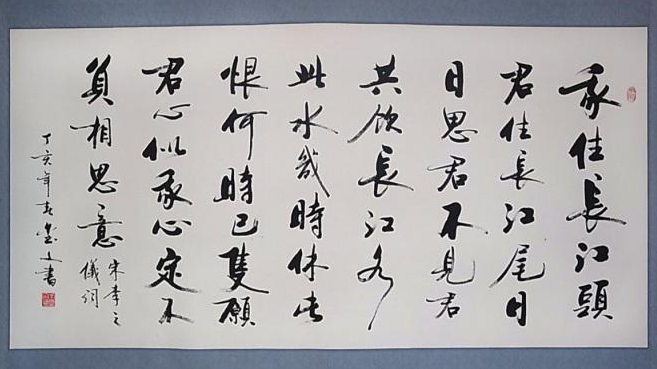 我住長江頭
君住長江尾日
日思君不見君
共飲長江水
此水幾時休此
恨何時已隻願
君心似我心定不
負相思意
宋李之
儀詞
丁亥年春文書